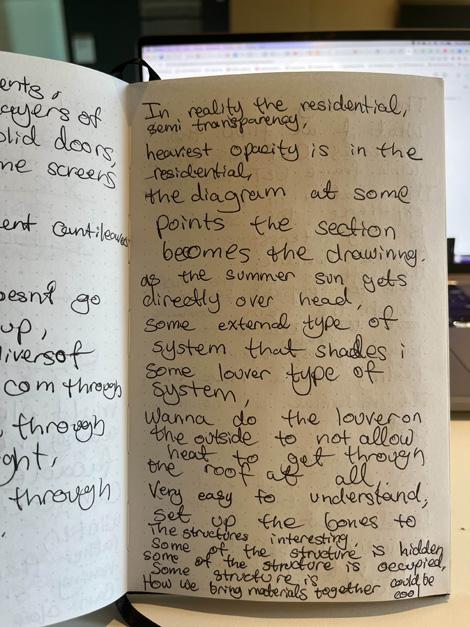 ents,
ayers of
olid doors,
me screens
ent cantileavers
oesn't go
up,
liversof
com through
through
ght,
through
In reality the residential,
semi transparency,
heaviest opacity is in the
residential,
the diagram at some
points the section
becomes the drawinng.
as the summer sun gets
directly over head,
some external type of
system that shades i
some louver type of
system,
Wanna do the louver on
the outside to not allow
heat to get through
the roof at all,
Very easy to understand,
set up the bones to
The structures interesting,
some of the structure is hidden
some of the structure is occupied,
Some structure is
How we bring materials together could be
cool